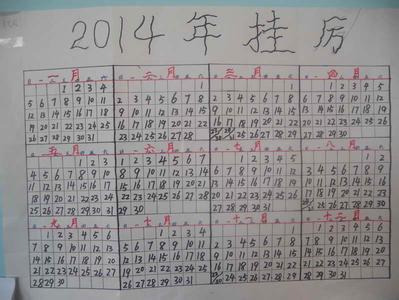 2014 年 挂 历
一 月
1 2 3 4
5 6 7 8 9 10 11
12 13 14 15 16 17 18
19 20 21 22 23 24 25
26 27 28 29 30 31
二 月
1
2 3 4 5 6 7 8
9 10 11 12 13 14 15
16 17 18 19 20 21 22
23 24 25 26 27 28
三 月
1
2 3 4 5 6 7 8
9 10 11 12 13 14 15
16 17 18 19 20 21 22
23/30 24/31 25 26 27 28 29
四 月
1 2 3 4 5
6 7 8 9 10 11 12
13 14 15 16 17 18 19
20 21 22 23 24 25 26
27 28 29 30
五 月
1 2 3
4 5 6 7 8 9 10
11 12 13 14 15 16 17
18 19 20 21 22 23 24
25 26 27 28 29 30 31
六 月
1 2 3 4 5 6 7
8 9 10 11 12 13 14
15 16 17 18 19 20 21
22 23 24 25 26 27 28
29 30
七 月
1 2 3 4 5
6 7 8 9 10 11 12
13 14 15 16 17 18 19
20 21 22 23 24 25 26
27 28 29 30 31
八 月
1 2
3 4 5 6 7 8 9
10 11 12 13 14 15 16
17 18 19 20 21 22 23
24/31 25 26 27 28 29 30
九 月
1 2 3 4 5 6
7 8 9 10 11 12 13
14 15 16 17 18 19 20
21 22 23 24 25 26 27
28 29 30
十 月
1 2 3 4
5 6 7 8 9 10 11
12 13 14 15 16 17 18
19 20 21 22 23 24 25
26 27 28 29 30 31
十一 月
1
2 3 4 5 6 7 8
9 10 11 12 13 14 15
16 17 18 19 20 21 22
23/30 24 25 26 27 28 29
十二 月
1 2 3 4 5 6
7 8 9 10 11 12 13
14 15 16 17 18 19 20
21 22 23 24 25 26 27
28 29 30 31